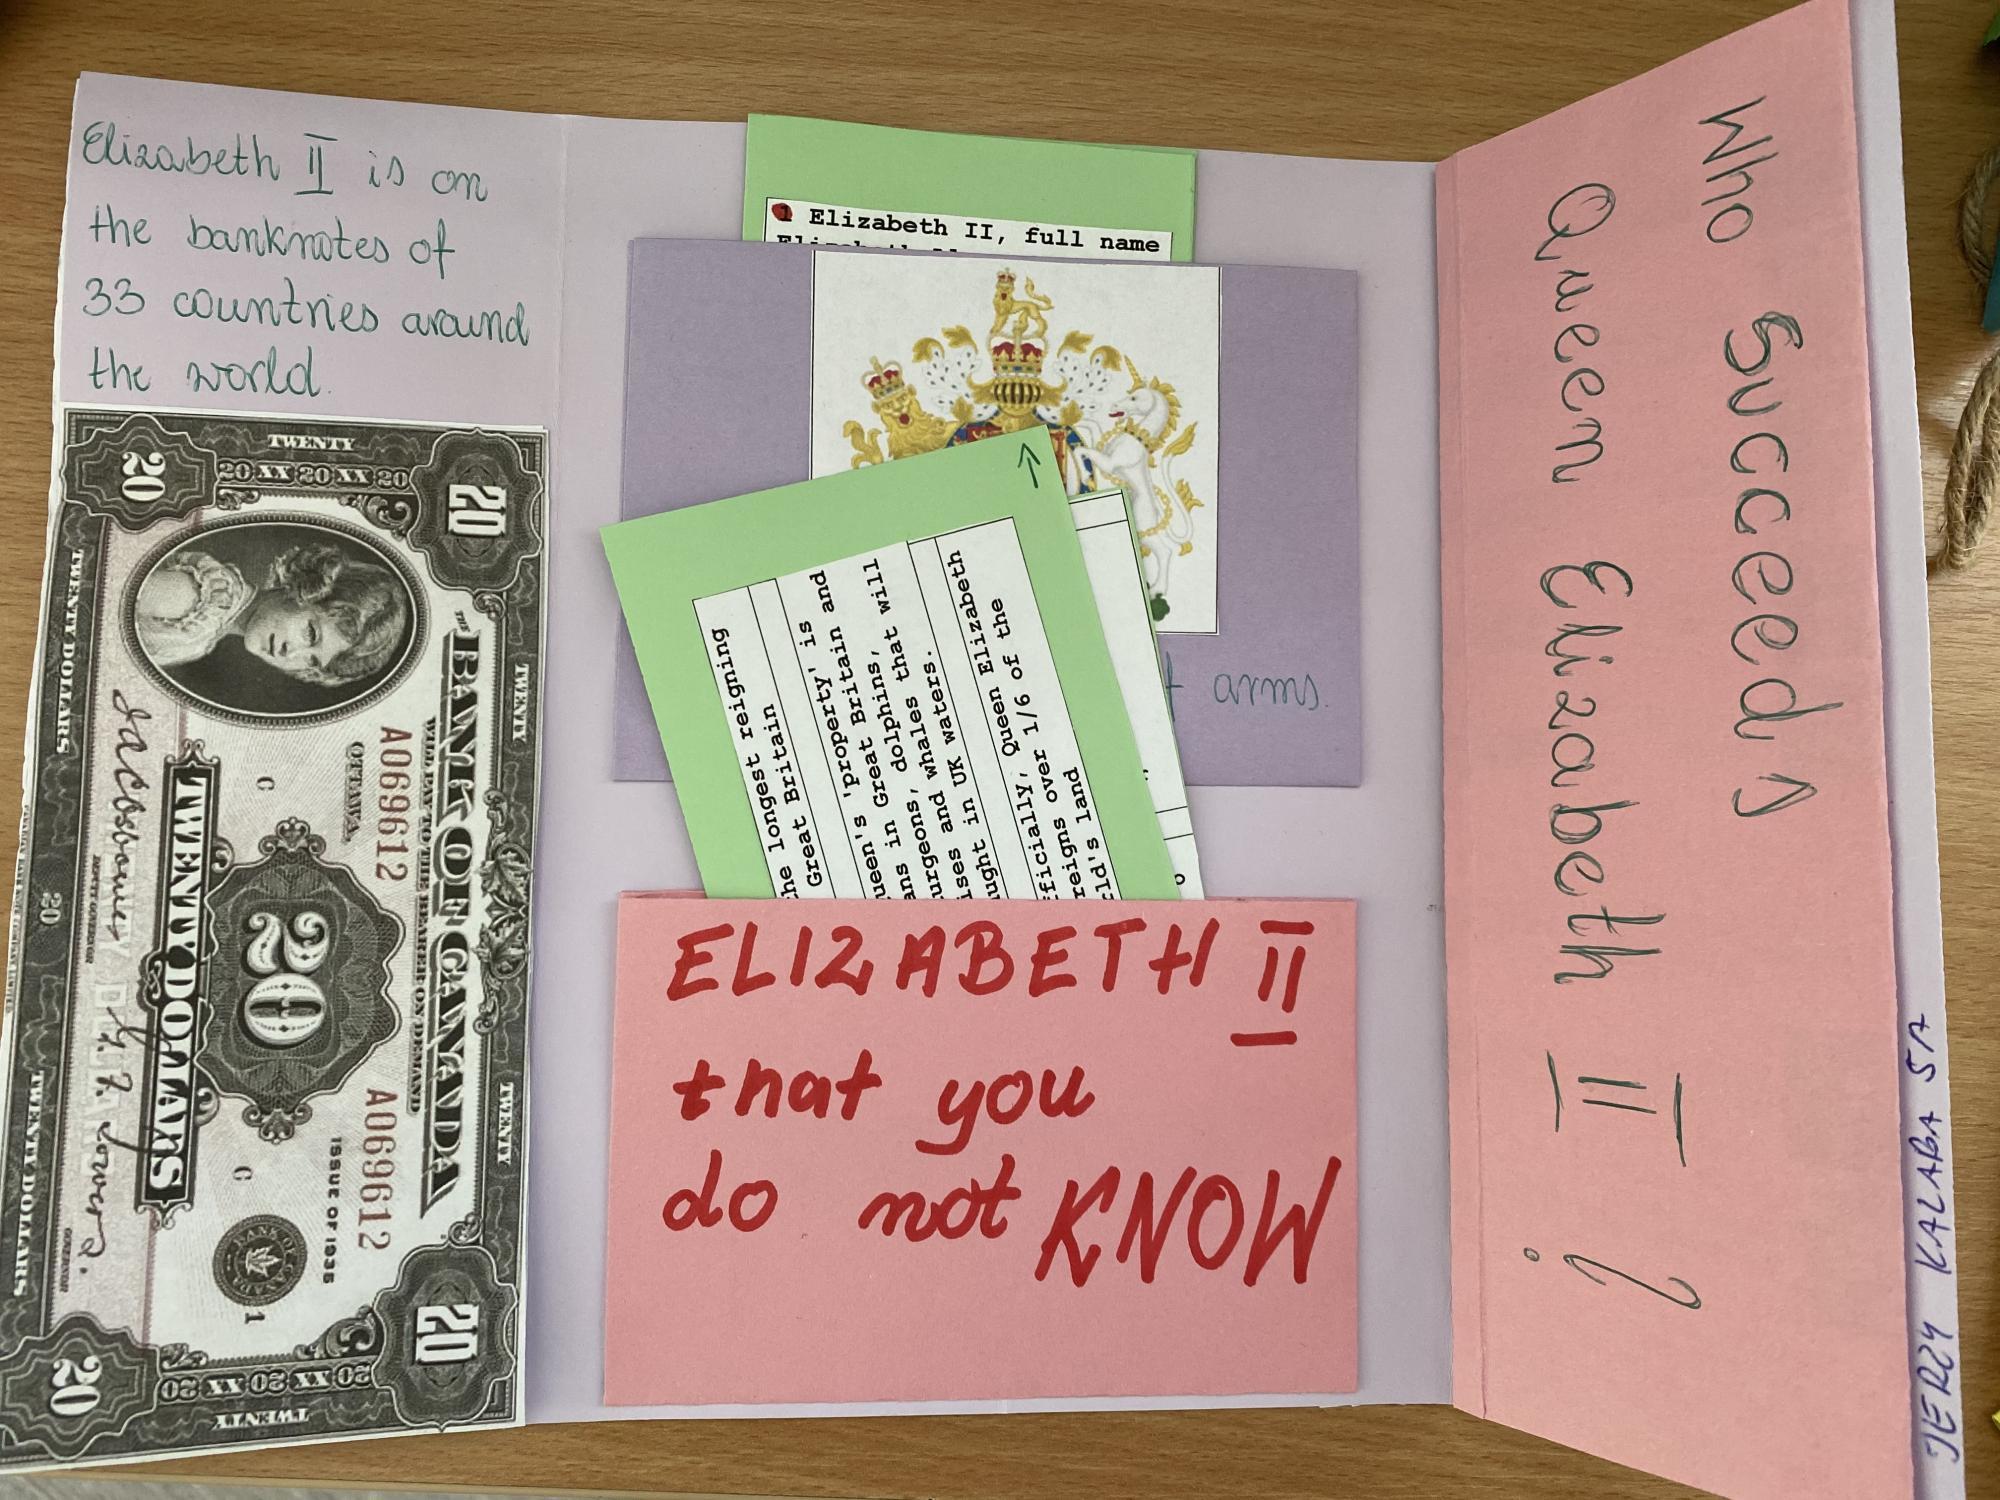 Elizabeth II is on
the banknotes of
33 countries around
the world.
TWENTY
20 XX 20 XX 20
20
20
THE
BANK OF CANADA
WILL PAY TO THE BEARER ON DEMAND
A069612
OTTAWA,
C
20
TWENTY DOLLARS
A069612
C
ISSUE OF 1935
BANK OF CANADA
1
DEPUTY GOVERNOR
GOVERNOR
TWENTY
TWENTY
TWENTY DOLLARS
20
TWENTY DOLLARS
20
20
20 XX 20 XX 20
TWENTY
1 Elizabeth II, full name
arms.
the longest reigning
Great Britain
ueen's 'property' is
ans in Great Britain and
urgeons, whales that will
ises and in dolphins,
ught in UK waters.
fficially, Queen Elizabeth
reigns over 1/6 of the
rld's land
ELIZABETH II
that you
do not KNOW
Who succeeds
Queen Elizabeth II?
JERZY KALABA 5A